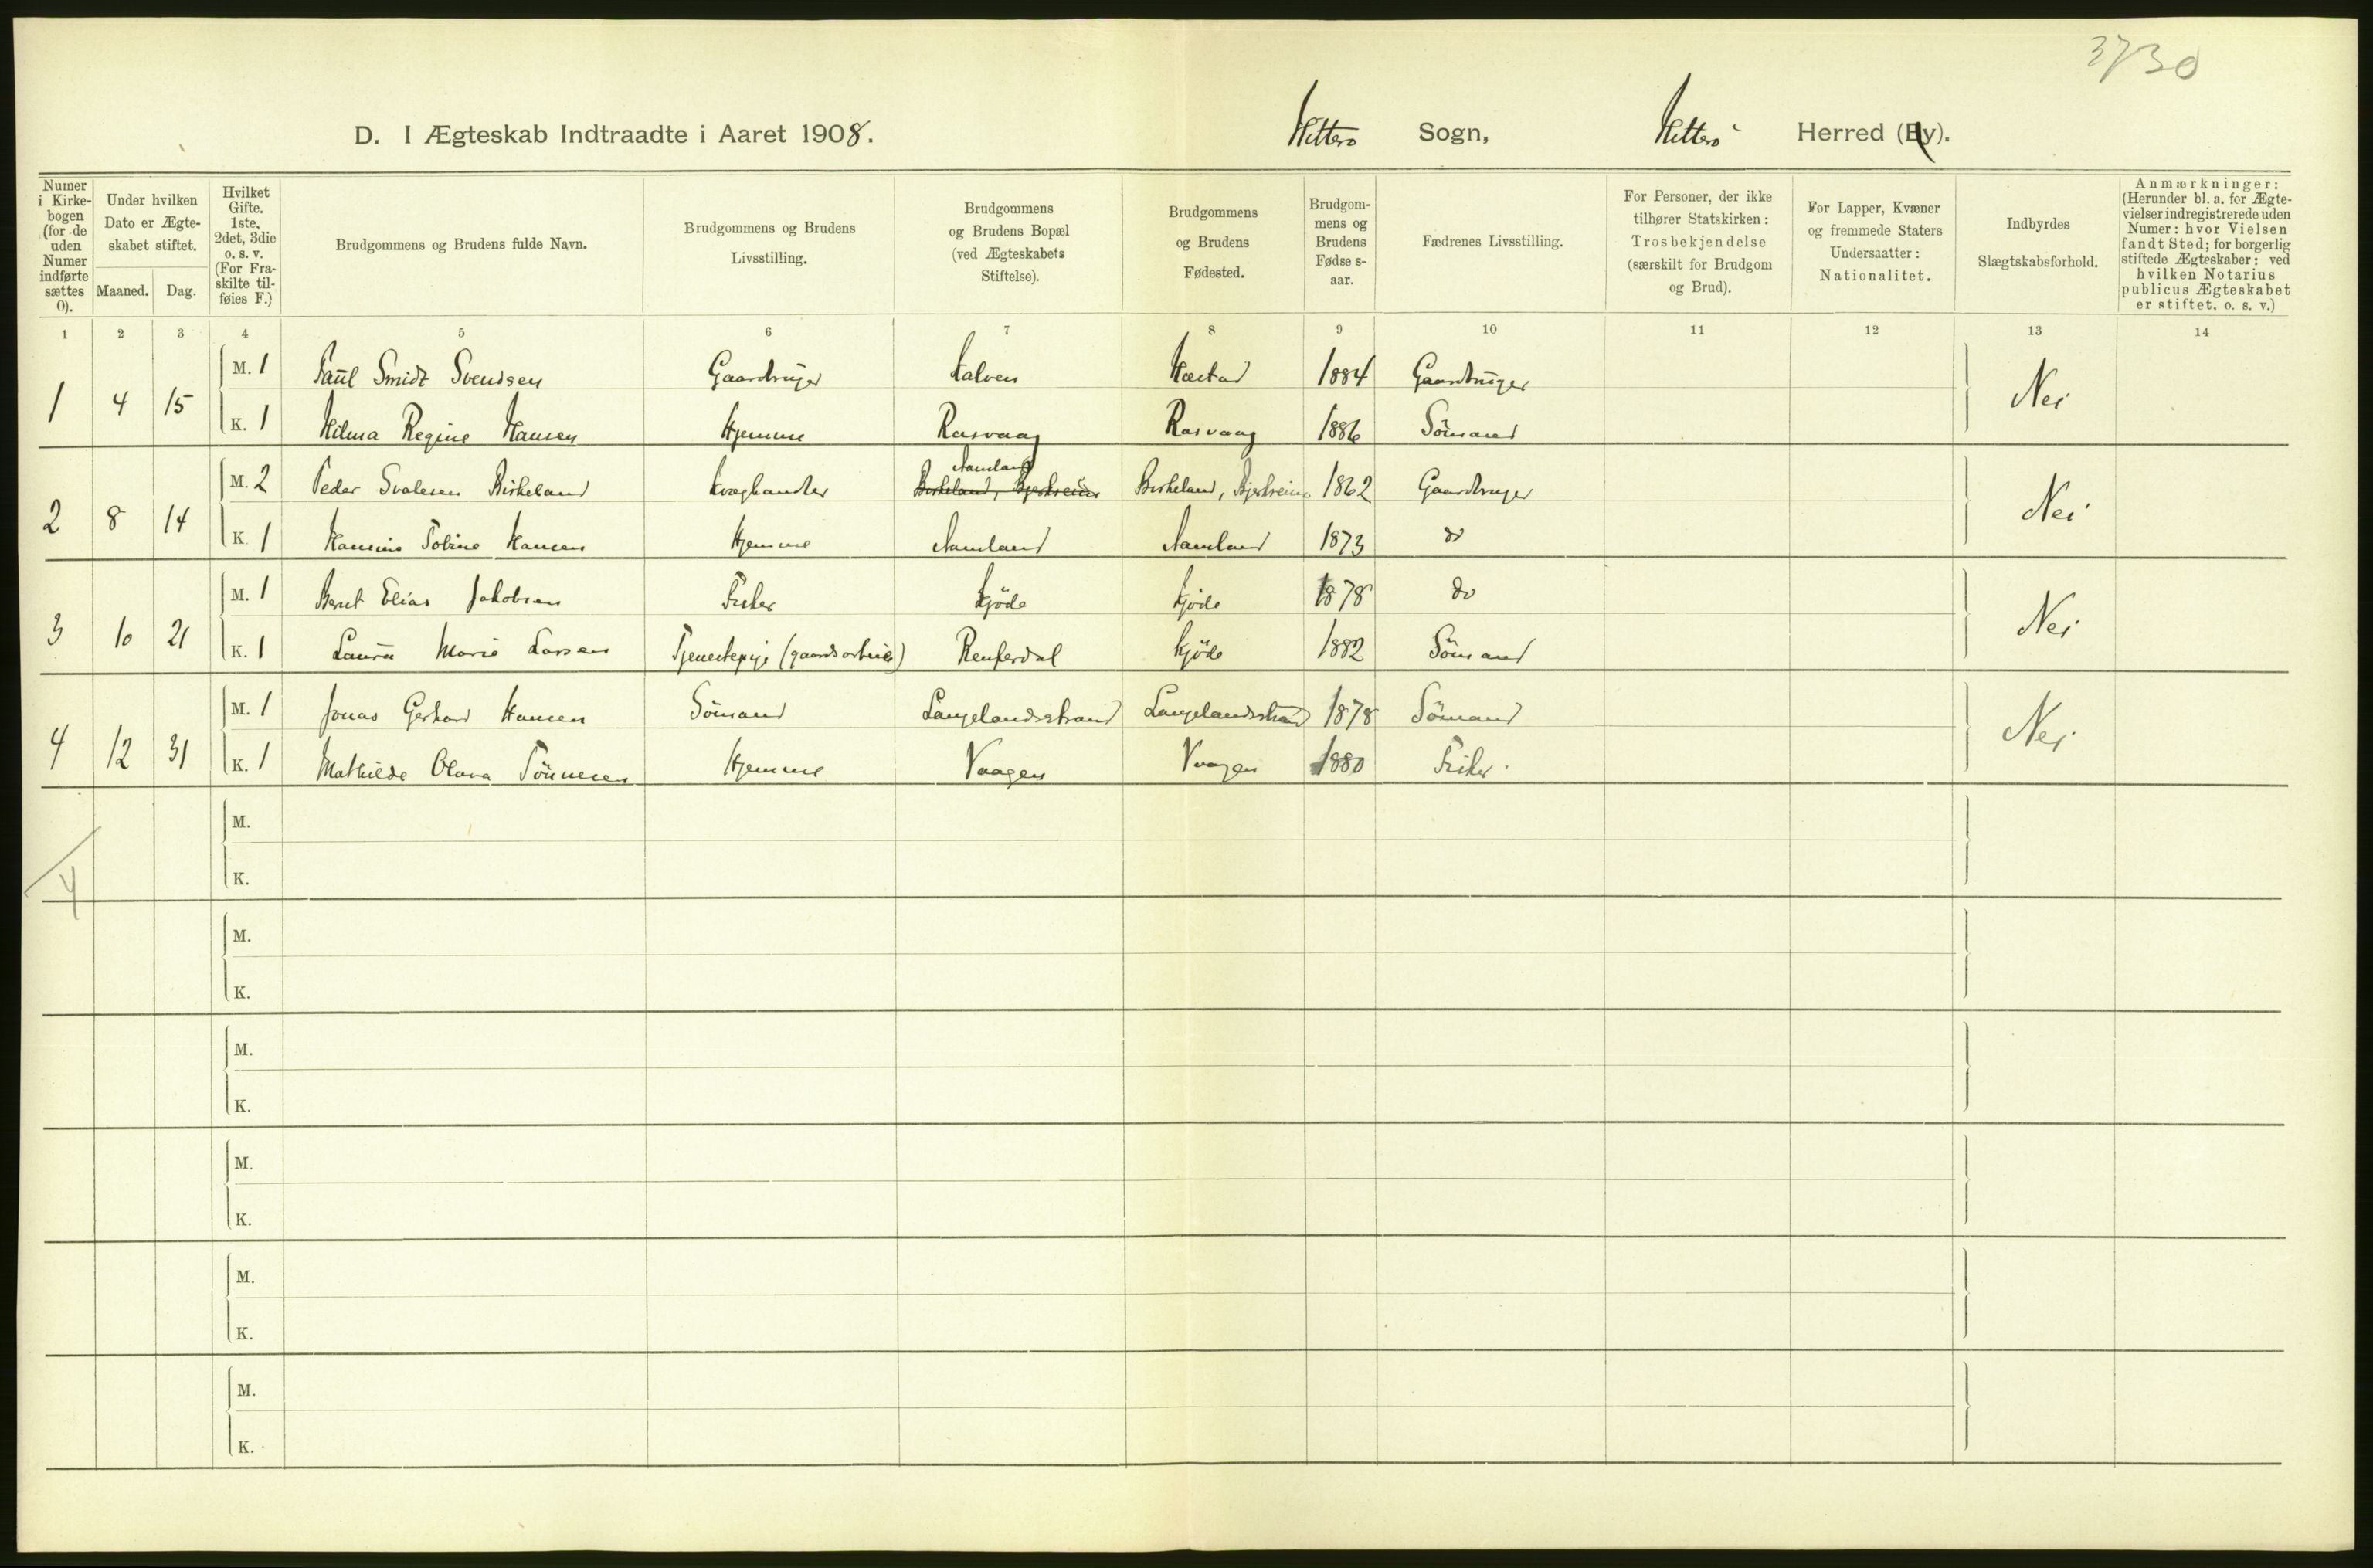 3730
D. I Ægteskab Indtraadte i Aaret 1908. Hitterö Sogn, Hitterö Herred (By).
Numer i Kirke-bogen (for de uden Numer indførte sættes 0).
Under hvilken Dato er Ægte-skabet stiftet.
Maaned. Dag.
Hvilket Gifte. 1ste, 2det, 3die o. s. v. (For Fra-skilte til-føies F.)
Brudgommens og Brudens fulde Navn.
Brudgommens og Brudens Livsstilling.
Brudgommens og Brudens Bopæl (ved Ægteskabets Stiftelse).
Brudgommens og Brudens Fødested.
Brudgom-mens og Brudens Fødse s-aar.
Fædrenes Livsstilling.
For Personer, der ikke tilhører Statskirken: Trosbekjendelse (særskilt for Brudgom og Brud).
For Lapper, Kvæner og fremmede Staters Undersaatter: Nationalitet.
Indbyrdes Slægtskabsforhold.
Anmærkninger: (Herunder bl. a. for Ægte-vielser indregistrerede uden Numer: hvor Vielsen fandt Sted; for borgerlig stiftede Ægteskaber: ved hvilken Notarius publicus Ægteskabet er stiftet. o. s. v.)
1 2 3 4 5 6 7 8 9 10 11 12 13 14
1 4 15 M. 1 Paul Smidt Svendsen Gaardbruger Kalven 1884 Gaardbruger Nei
K. 1 Hilma Regine Hansen Hjemme Rasvaag Rasvaag 1886 Sömand
Aamland
2 8 14 M. 2 Peder Svalesen Birkeland Kvæghandler Birkeland, Bjerkreim Birkeland, Bjerkreim 1862 Gaardbruger Nei
K. 1 Hansine Tobine Hansen Hjemme Aamland Aamland 1873 do
3 10 21 M. 1 Bernt Elias Jakobsen Fisker Kjöde Kjöde 1878 do Nei
K. 1 Laura Marie Larsen Tjenestepige (gaardsarbeide) Kjöde 1882 Sömand
4 12 31 M. 1 Jonas Gerhard Hansen Sömand Langelandsstrand Langelandsstrand 1878 Sömand Nei
K. 1 Mathilde Olava Tönnesen Hjemme Vaagen Vaagen 1880 Fisker
M.
K.
4
M.
K.
M.
K.
M.
K.
M.
K.
M.
K.